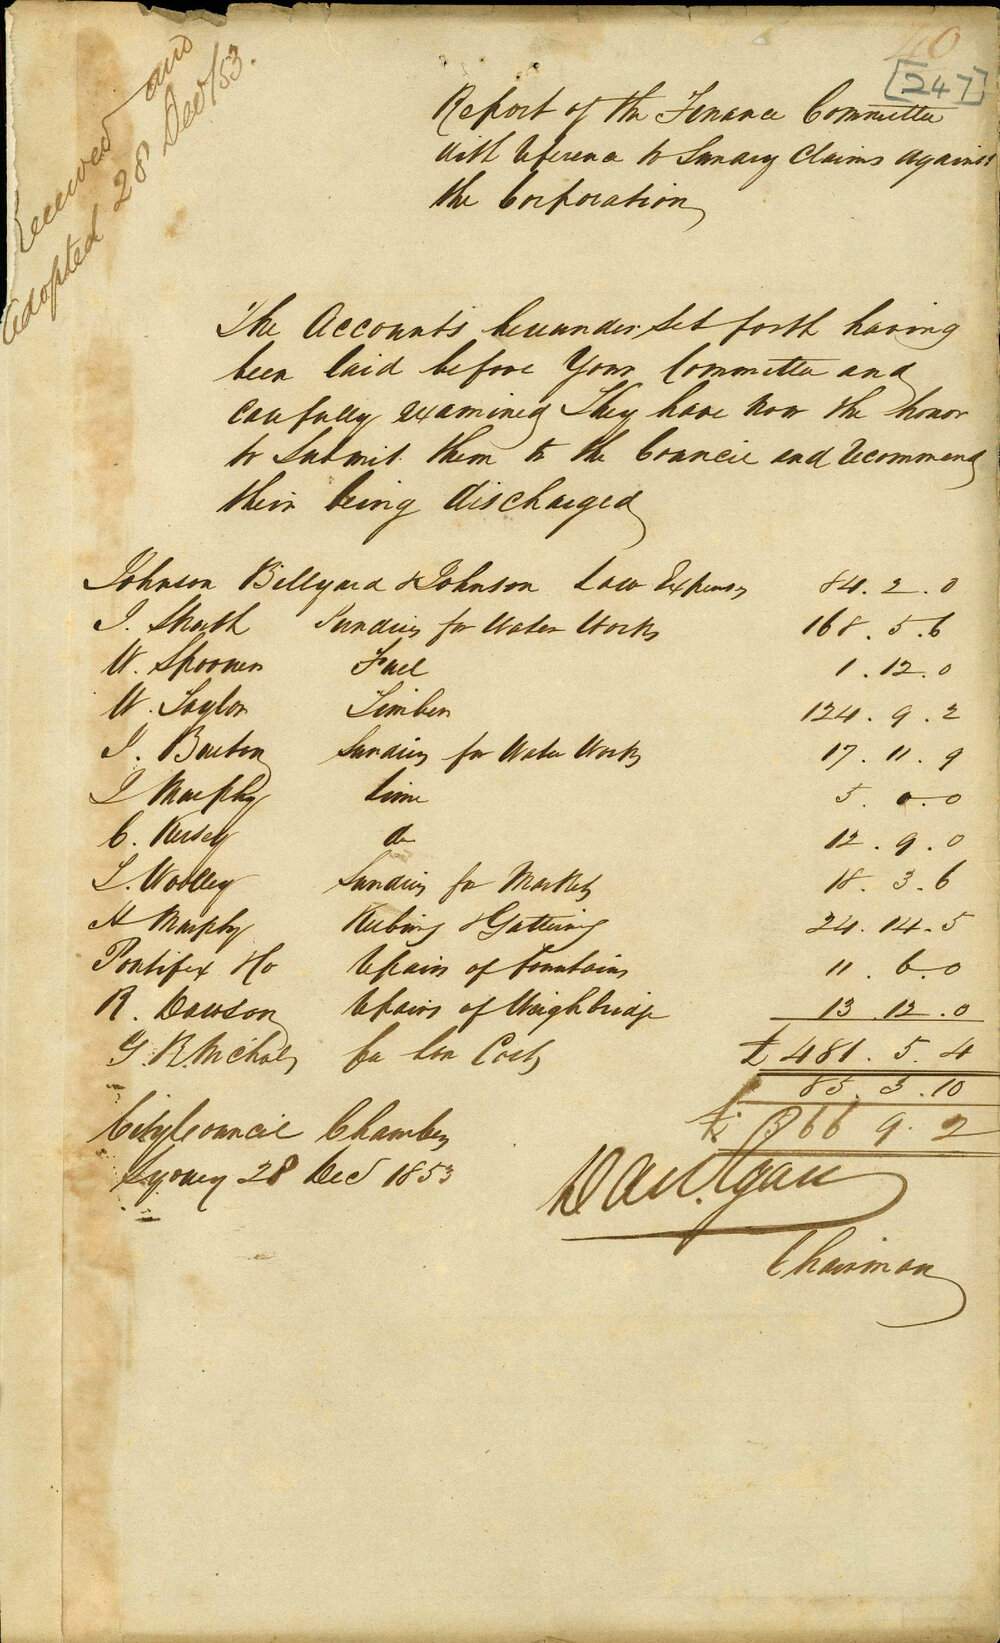 40
[247]
Received and
adopted 28 Dec/53.
Report of the Finance Committee
with reference to Sundry Claims against
the Corporation
The Accounts hereunder set forth having
been laid before Your Committee and
carefully examined They have now the honor
to Submit them to the Council and recommend
their being discharged
Johnson Billyard & Johnson Law Expenses 84. 2. 0
J. Sundries for Water Works 168. 5. 6
W. Spooner Fuel 1. 12. 0
W. Taylor Timber 124. 9. 2
J. Barton Sundries for Water Works 17. 11. 9
J Murphy Lime 5. 0. 0
C. Kersey do 12. 9. 0
L. Woolley Sundries for Markets 18. 3. 6
H Murphy Kerbing & Guttering 24. 14. 5
Pontifex & Co Repairs of Fountains 11. 6. 0
R. Dawson Repairs of Weighbridge 13. 12. 0
G. R. Nichols £ 481. 5. 4
85. 3. 10
£ 566 9. 2
City Council Chambers
Sydney 28 Dec 1853
Dan L. Egan
Chairman